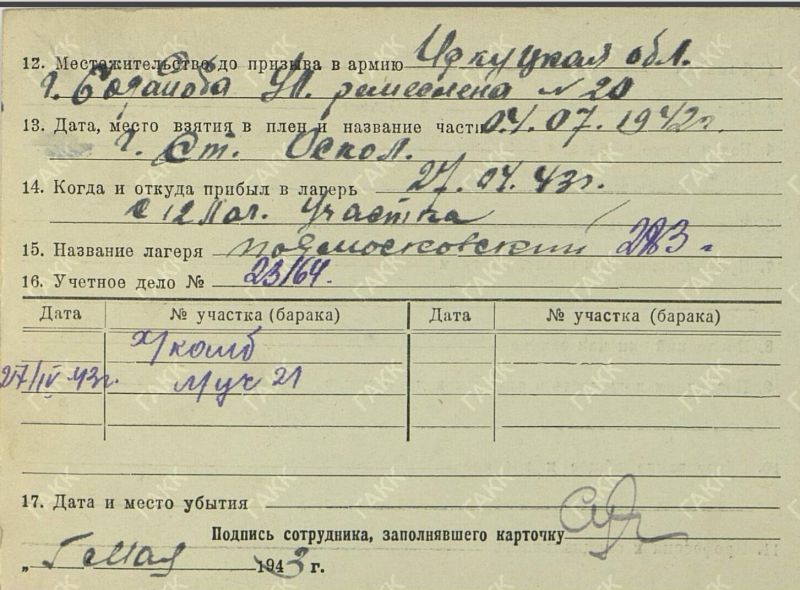 12. Местожительство до призыва в армию Иркуцкая обл.
г. Бодайбо Ул. ремеслена № 20
13. Дата, место взятия в плен и название части 04.07.1942г.
г. Ст. Оскол.
14. Когда и откуда прибыл в лагерь 27.04.43г.
с 12 участка
15. Название лагеря подмосковский 283
16. Учетное дело № 23/64.
Дата № участка (барака) Дата № участка (барака)
27/IV 43г. 21
17. Дата и место убытия
Подпись сотрудника, заполнявшего карточку
„ мая 1943 г.